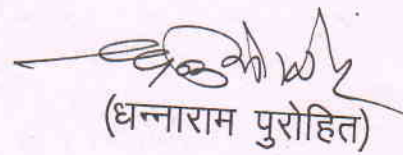 (धन्नाराम पुरोहित)